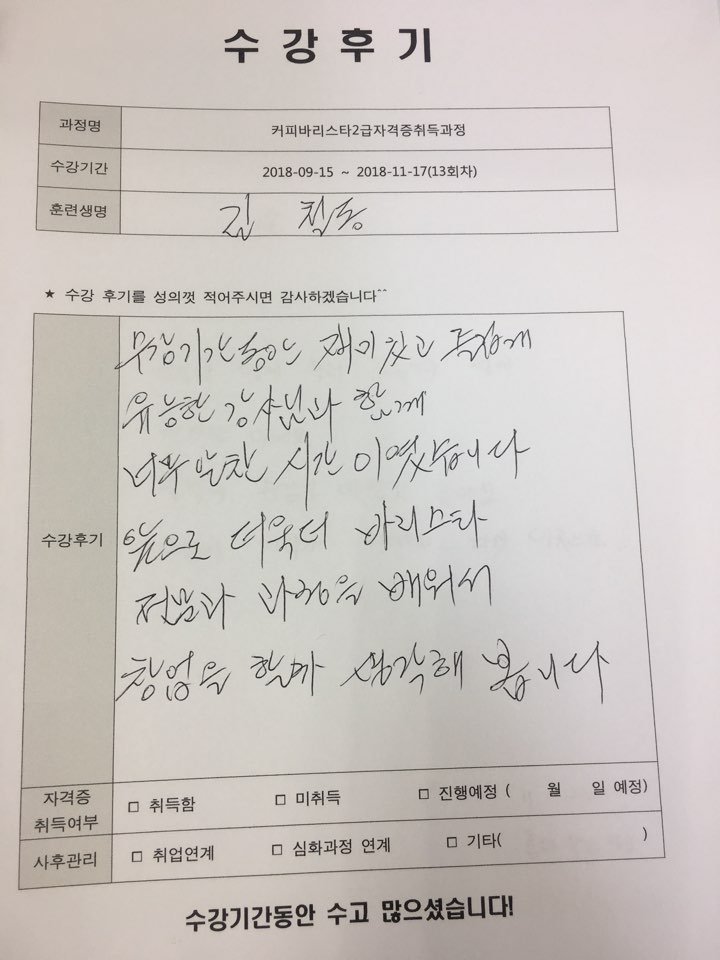 수강후기
과정명 커피바리스타2급자격증취득과정
수강기간 2018-09-15 ~ 2018-11-17(13회차)
훈련생명 김 철동
★ 수강 후기를 성의껏 적어주시면 감사하겠습니다^^
수강기간동안 재미있고
유능한 강사님과 함께
너무 알찬 시간 이였습니다
수강후기
앞으로 더욱더 바리스타
전문과 과정을 배워서
창업을 할까 생각해 봅니다
자격증 취득여부 □ 취득함 □ 미취득 □ 진행예정 ( 월 일 예정)
사후관리 □ 취업연계 □ 심화과정 연계 □ 기타( )
수강기간동안 수고 많으셨습니다!